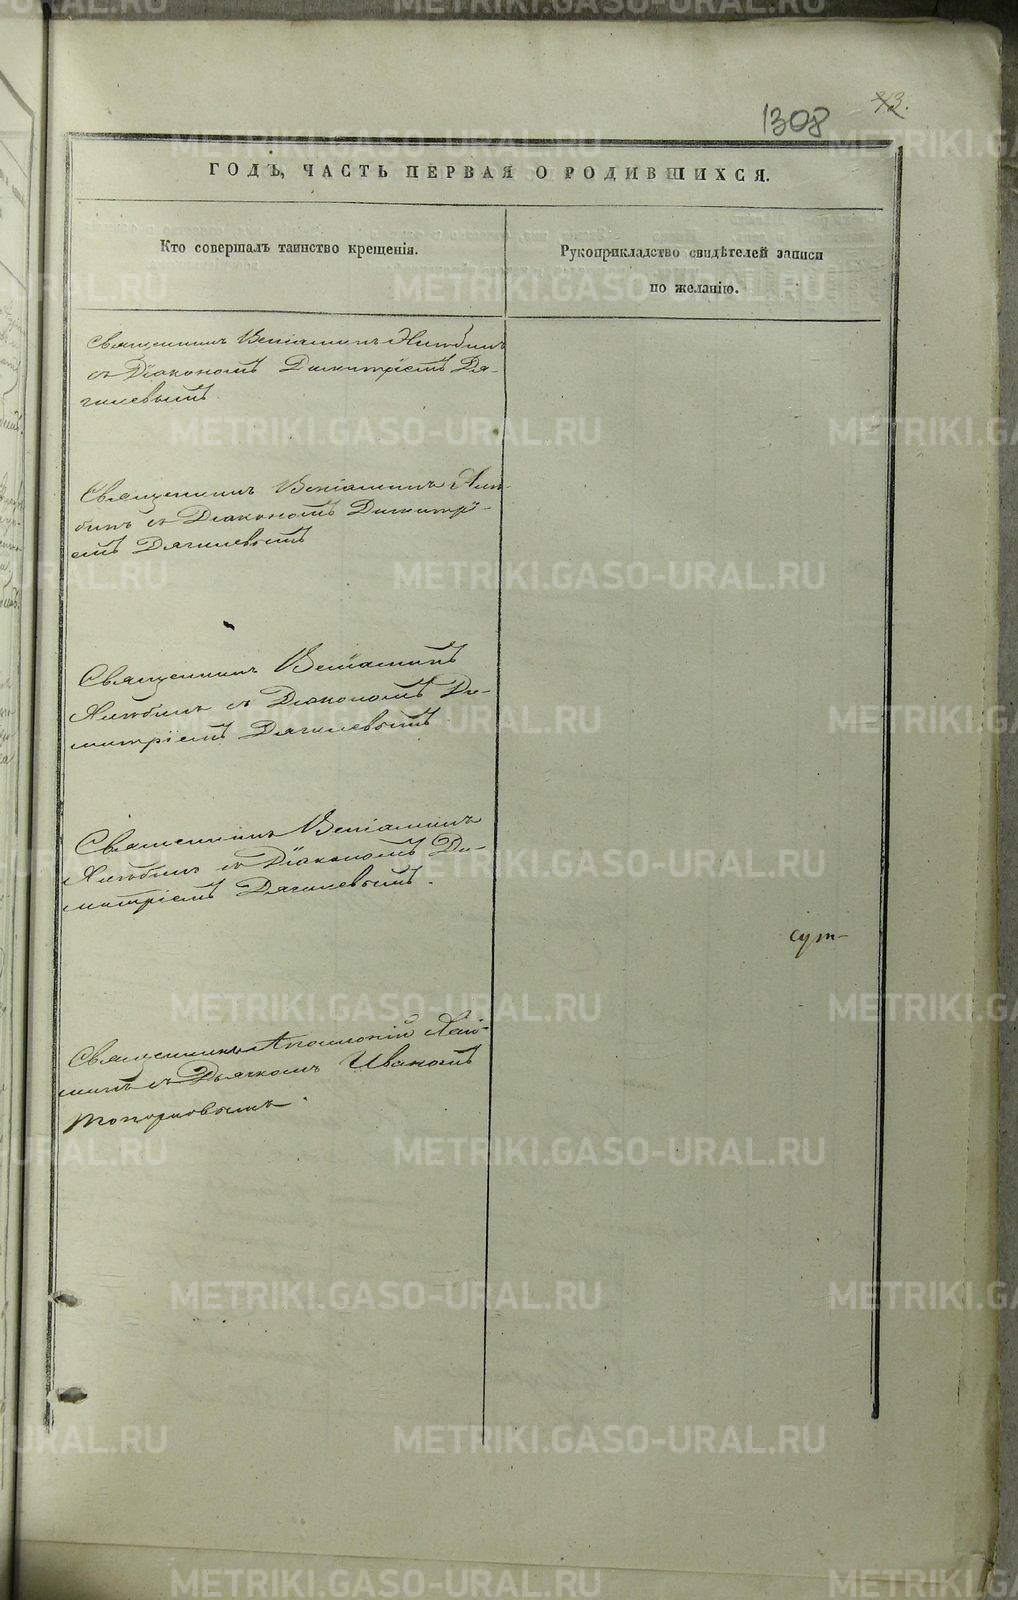 1308
ГОДЪ, ЧАСТЬ ПЕРВАЯ О РОДИВШИХСЯ.
Кто совершалъ таинство крещенія.
Рукоприкладство свидѣтелей записи
по желанію.
Священникъ Веніаминъ
съ Діакономъ Димитріемъ Дя-
гилевымъ
Священникъ Веніаминъ
съ Діакономъ Димитрі-
емъ Дягилевымъ
Священникъ Веніаминъ
съ Діакономъ Ди-
митріемъ Дягилевымъ.
Священникъ Веніаминъ
съ Діакономъ Ди-
митріемъ Дягилевымъ.
Священникъ
съ Дьячкомъ Иваномъ
Топорковымъ.
METRIKI.GASO-URAL.RU